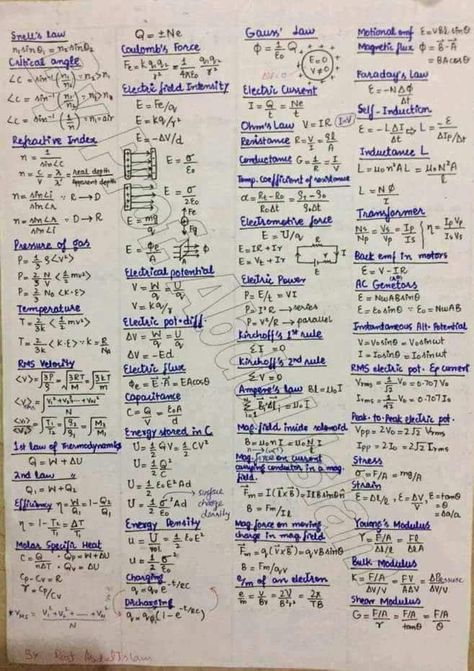 Snell's law
n₁sinθ₁ = n₂sinθ₂
Critical angle
Refractive Index
n = 1/sin∠C
n = c/v = λ/λ' = Real depth/apparent depth
n = sin∠i/sin∠r ∵ R → D
n = sin∠r/sin∠i ∵ D → R
Pressure of gas
P = 1/3 ρ<v²>
P = 2/3 N/V <1/2 mv²>
P = 2/3 N₀ <K·E>
Temperature
T = 2/3k <1/2 mv²>
T = 2/3k <K·E> ∵ k = R/NA
RMS Velocity
<v> = √3P/ρ = √3RT/M = √3kT/m
1st law of Thermodynamics
Q = W + ΔU
2nd law "
Q₁ = W + Q₂
Efficiency η = W/Q₁ = 1 - Q₂/Q₁
η = 1 - T₂/T₁ = ΔT/T₁
Molar Specific Heat
C = Q/nΔT ∵ Qp = W + ΔU
Qv = ΔU
Cp - Cv = R
γ = Cp/Cv
Q = ±Ne
Coulomb's Force
Fe = k q₁q₂/r² = 1/4πε₀ q₁q₂/r²
Electric field Intensity
E = Fe/q
E = kq/r²
E = -ΔV/d
E = σ/ε₀
E = σ/2ε₀
E = mg/q
E = Φe/A
Electrical potential
V = W/q = U/q
V = kq/r
Electric pot· diff·
ΔV = W/q = U/q
ΔV = -Ed
Electric flux
Φe = E⃗·A⃗ = EAcosθ
Capacitance
C = Q/V = ε₀A/d
Energy stored in C
U = 1/2 QV = 1/2 CV²
U = 1/2 Q²/C
U = 1/2 ε₀E²Ad
U = 1/2 σ²/ε₀ Ad
surface charge density
Energy Density
u = U/vol = 1/2 ε₀E²
u = 1/2 σ²/ε₀
Charging
Discharging
Gauss' Law
Φ = 1/ε₀ Q
E = 0
V ≠ 0
ΔV = 0
Electric Current
I = Q/t = Ne/t
Ohm's Law V = IR
Resistance R = V/I = ρl/A
Conductance G = 1/R = I/V
Temp. Coefficient of resistance
α = Rt - R₀/R₀Δt = ρt - ρ₀/ρ₀Δt
Electromotive force
E = U/q
E = IR + Ir
E = Vt + Ir
Electric Power
P = E/t = VI
P = I²R → series
P = V²/R → parallel
Kirchoff's 1st rule
ΣI = 0
Kirchoff's 2nd rule
ΣV = 0
Ampere's law BL = μ₀I
Mag. field inside solenoid
B = μ₀nI = μ₀NI/L
Mag. force on current
carrying conductor in a mag.
field.
Fm = I(L⃗×B⃗) = ILBsinθ
B = Fm/IL
Mag force on moving
charge in mag field
Fm = q(v⃗×B⃗) = qvBsinθ
B = Fm/qv
e/m of an electron
Motional emf E = vBLsinθ
Magnetic flux Φ = B⃗·A⃗
= BAcosθ
Faraday's Law
E = -NΔΦ/Δt
Self-Induction
E = -LΔI/Δt
Inductance L
L = μ₀n²AL = μ₀N²A/l
L = NΦ/I
Transformer
Ns/Np = Vs/Vp = Ip/Is
Back emf In motors
E = V - IR
AC Genetors
E = NωABsinθ
E = E₀sinθ ∵ E₀ = NωAB
Instantaneous Alt· Potential
V = V₀sinθ = V₀sinωt
I = I₀sinθ = I₀sinωt
RMS electric pot· & current
Vrms = 1/√2 V₀ = 0.707V₀
Irms = 1/√2 I₀ = 0.707 I₀
Peak-to-Peak electric pot.
Vpp = 2V₀ = 2√2 Vrms
Ipp = 2I₀ = 2√2 Irms
Stress
σ = F/A = mg/A
Strain
E = ΔL/L, E = ΔV/V, E = tanθ
Young's Modulus
Bulk Modulus
K = F/A/ΔV/V = FV/AΔV
Shear Modulus
G = F/A/γ = F/A/tanθ = F/A/θ